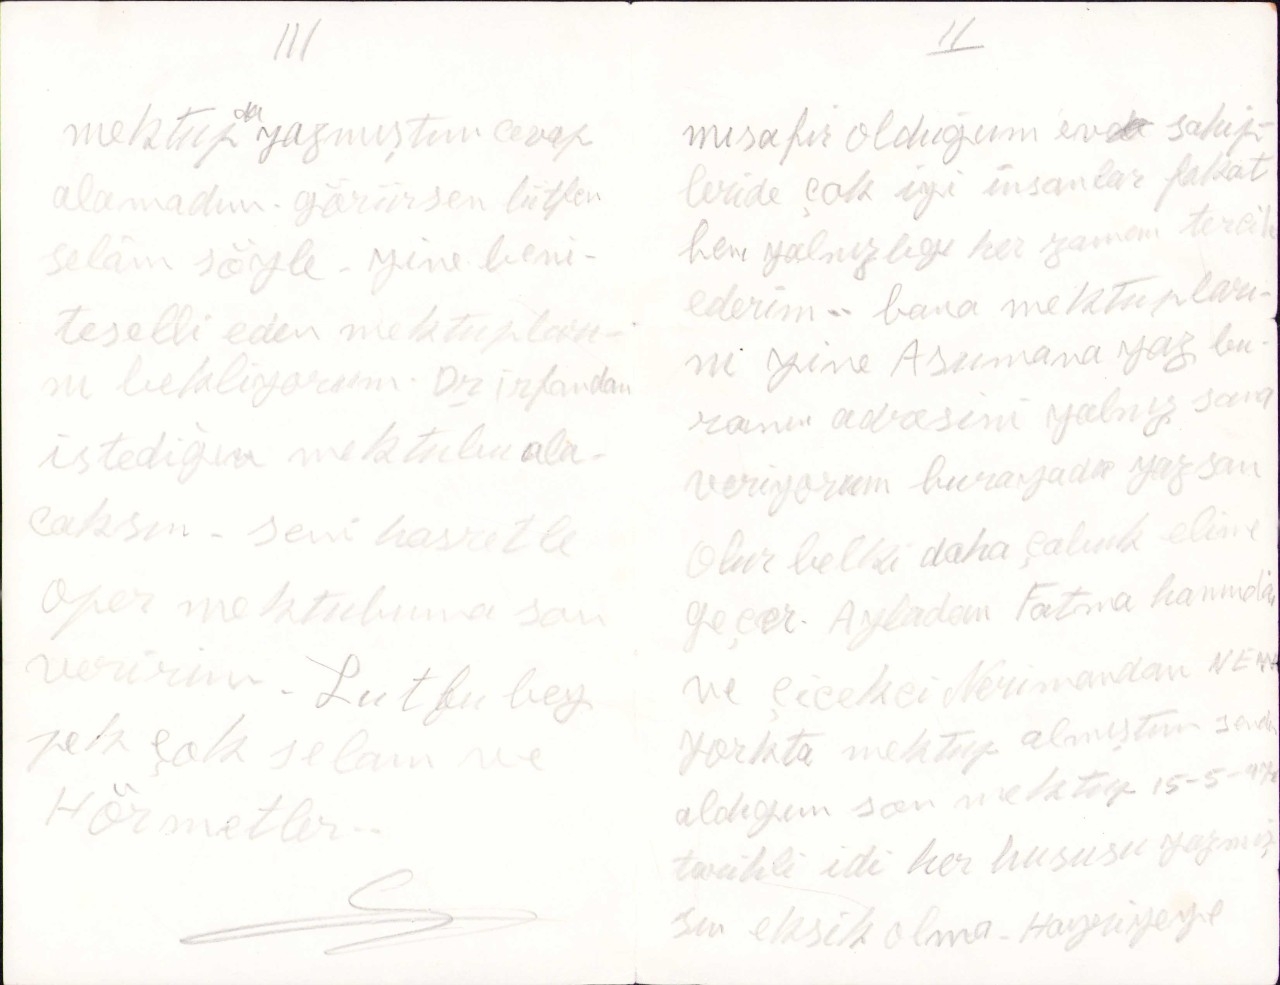 II
misafir olduğum evde sahip-
leride çok iyi insanlar fakat
ben yalnızlığı her zaman tercih
ederim.. bana mektupları-
nı yine Asumana yaz bu-
ranın adresini yalnız sana
veriyorum burayada yazsan
Olur belki daha çabuk elime
geçer. Ayladan Fatma hanımdan
ve Çiçekci Nerimandan NEW
Yorkta mektup almıştım senden
aldığım son mektup 15-5-
tarihli idi her hususu yazmış
sın eksik olma - Hayriyeye
III
mektup da yazmıştım cevap
alamadım. görürsen lütfen
selâm söyle - yine beni-
teselli eden mektupları-
nı bekliyorum. Dr irfandan
istediğin mektubu ala-
caksın - seni hasretle
öper mektubuma son
veririm - Lutfu bey
pek çok selam ve
Hörmetler..